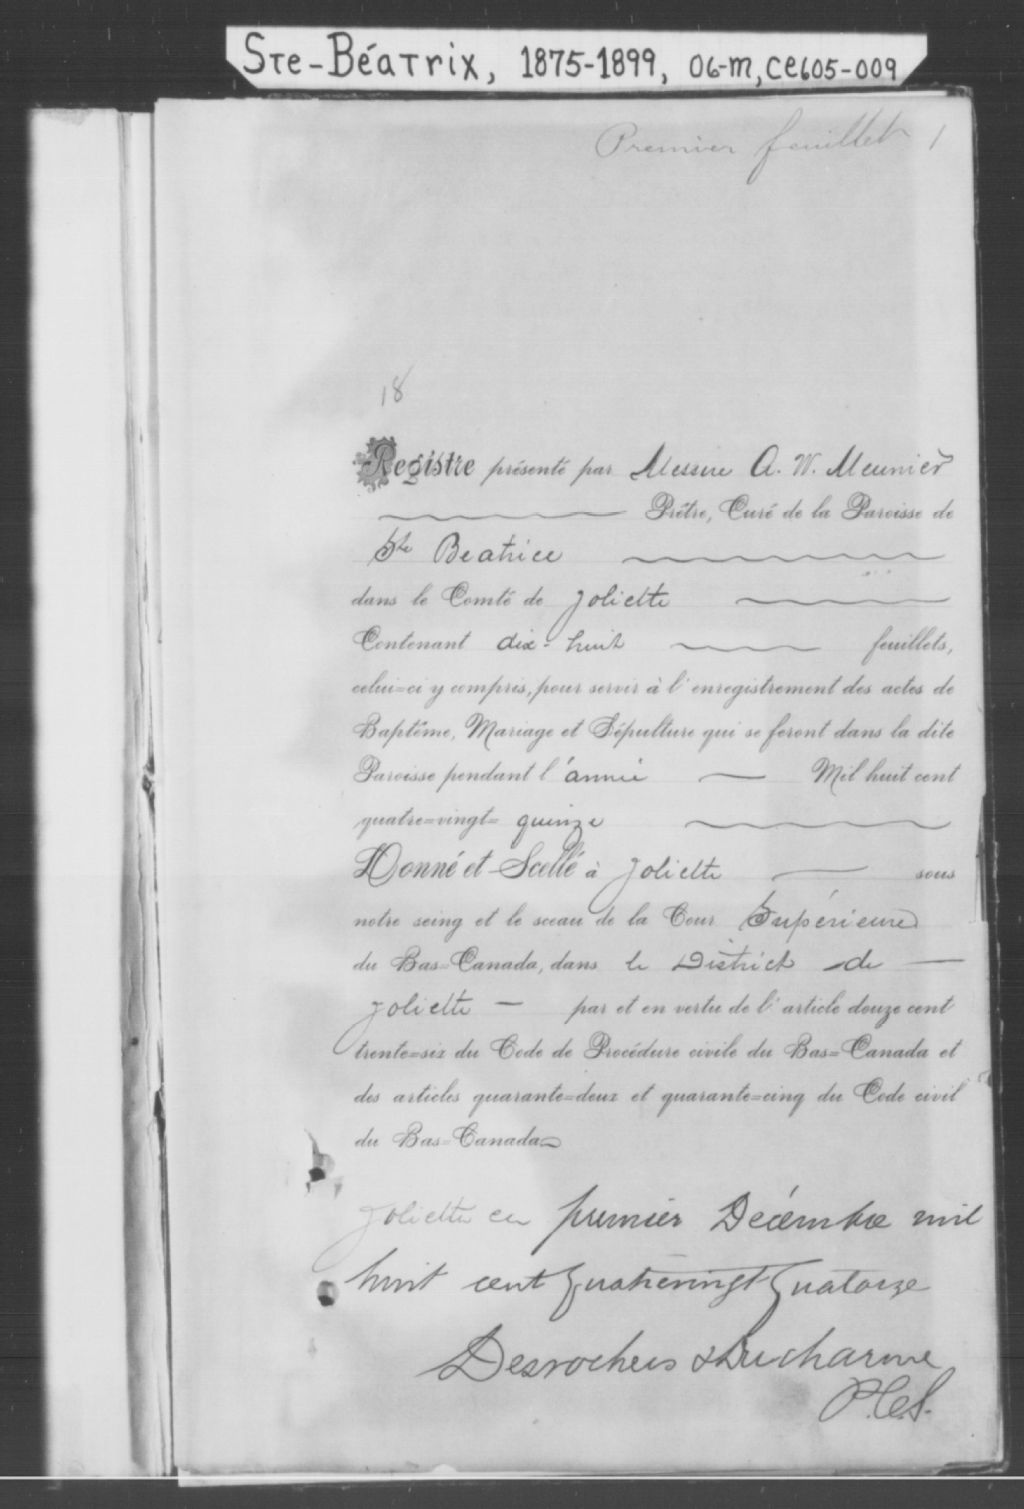 Ste-Béatrix, 1875-1899, 06-m, ce605-009
Premier feuillet 1
18
Registre présenté par Messire A. W. Meunier
Prêtre, Curé de la Paroisse de
Ste Beatrice
dans le Comté de Joliette
Contenant dix-huit feuillets,
celui=ci y compris, pour servir à l'enregistrement des actes de
Baptême, Mariage et Sépulture qui se feront dans la dite
Paroisse pendant l'année Mil huit cent
quatre=vingt= quinze
Donné et Scellé à Joliette sous
notre seing et le sceau de la Cour Supérieure
du Bas=Canada, dans le District de
Joliette par et en vertu de l'article douze cent
trente=six du Code de Procédure civile du Bas=Canada et
des articles quarante=deux et quarante=cinq du Code civil
du Bas=Canada
Joliette ce premier Décembre mil
huit cent quatrevingt quatorze
Desrochers & Ducharme
P.C.S.